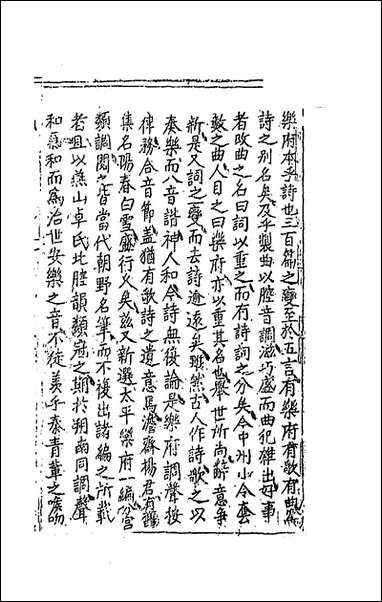 樂府本乎詩也三百篇之變至於五言有樂府有歌有曲為
詩之别名矣及乎製曲以腔音調滋巧盛而曲犯雜出好事
者改曲之名曰詞以重之而有詩詞之分矣今中州小令套
數之曲人目之曰樂府亦以重其名也舉世所尚辭意爭
新是又詞之變而去詩逾遠矣雖然古人作詩歌之以
奏樂而八音諧神人和今詩無復論是樂府調聲按
律務合音節盖猶有歌詩之遺意焉澹齋楊君有選
集名陽春白雪盛行久矣兹又新選太平樂府一編分宫
類調閱之皆當代朝野名筆而不復出諸編之所載
者且以燕山卓氏北腔韻類冠之期於朔南同調聲
和氣和而為治世安樂之音不徒羡乎秦青軰之喉吻